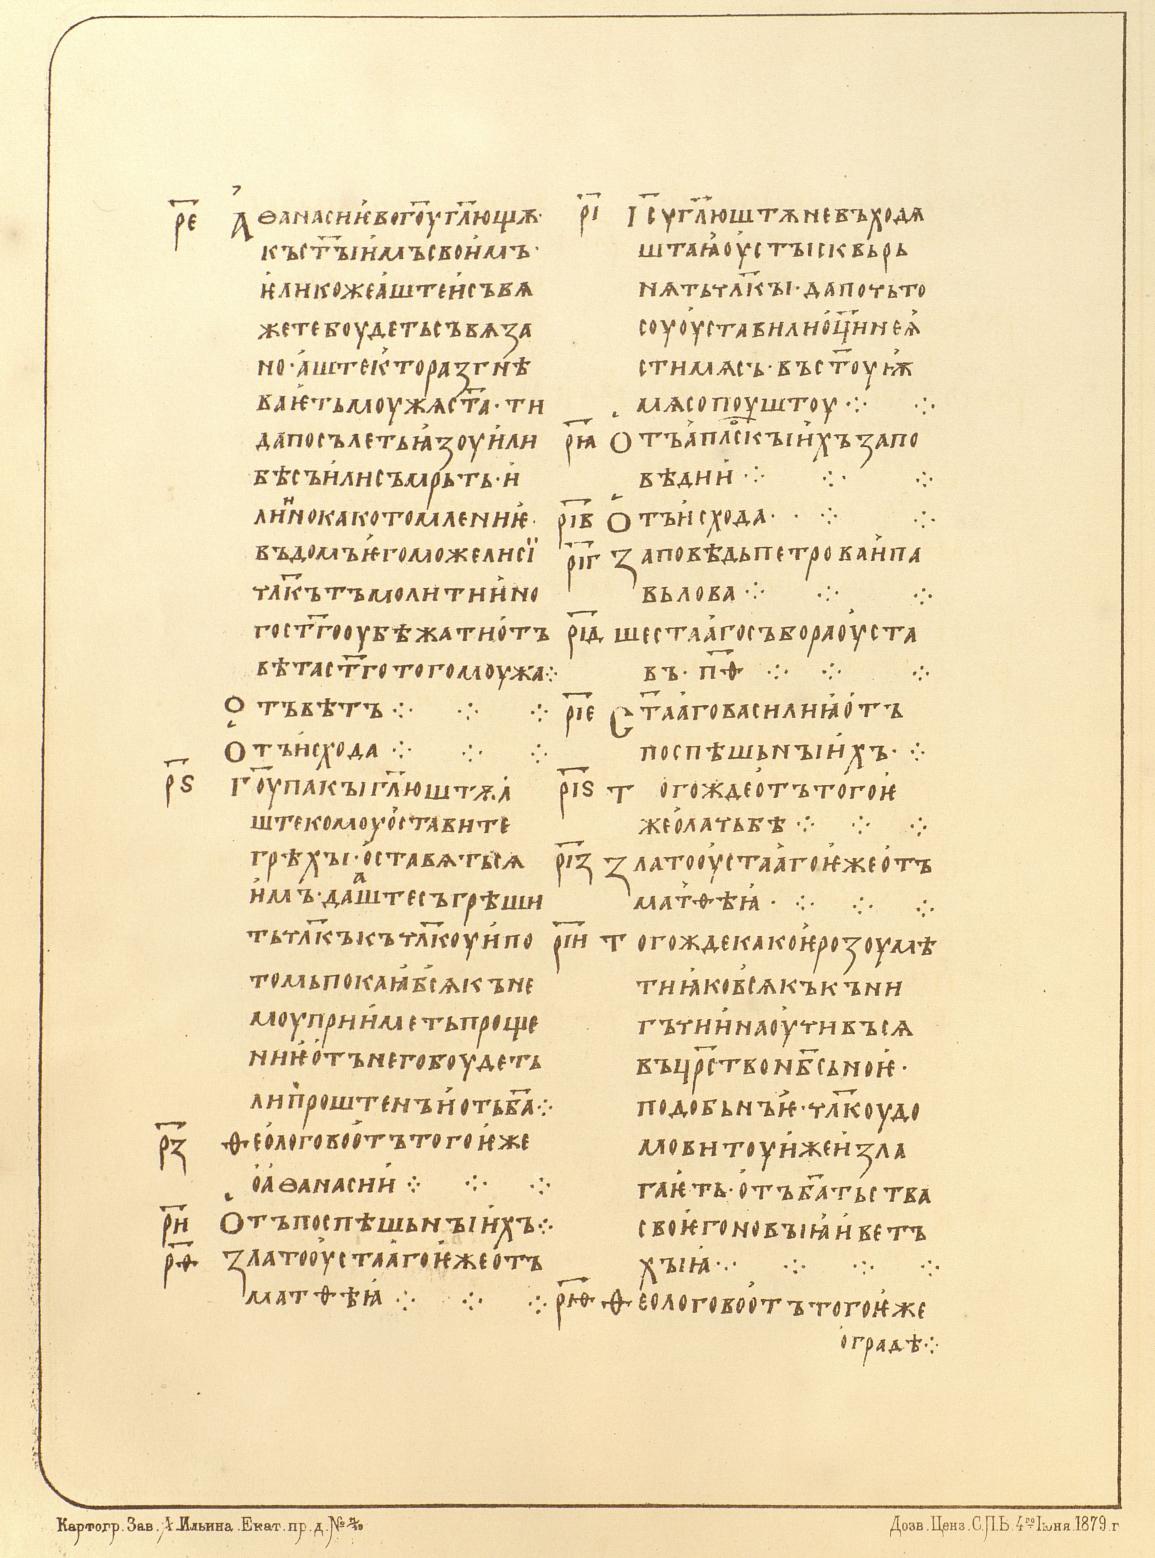 р҃е Аѳанасиѥвог҃оугл҃ющѫ·
къст҃ыимъсвоимъ·
ѥликожеаштеисъвѧ
жетебоудетьсъвѧза
но·аштекторазгнѣ
ваѥтьмоужѧст҃а·ти
дапосълетьꙗзоуили
бѣсъилисъмрьть·и
лиинокакотомлениѥ·
въдомъѥгоможелисї
чл҃кътъмолитниино
гост҃гооубѣжатиотъ
вѣтаст҃готогомоужа⁘
Отъвѣтъ⁘ ⁘ ⁘
Отъисхода⁘ ⁘ ⁘
р҃ѕ Іг҃оупакыгл҃юштѫа
штекомоуоставите
грѣхы·оставѧтьсѧ
имъ·дааштесъгрѣши
тьчл҃къкъчл҃коуипо
томьпокаꙗв҃сѧкъне
моуприиметьпроще
ниѥотънегобоудеть
липроштенъиотьб҃а⁘
р҃з Ѳеологовоотътогоѥже
оаѳанасии⁘ ⁘ ⁘
р҃и Отъпоспѣшьныихъ⁘
р҃ѳ Златооустаагоѥжеотъ
матѳѣꙗ⁘ ⁘ ⁘
р҃і Іс҃угл҃юштѫневъходѧ
штаꙗоустысквьрь
нѧтьчл҃кы·дапочьто
соуоуставилиоц҃ииеѧ
стимѧсъ·въст҃оуѭ
мѧсопоуштоу⁘ ⁘
р҃іа Отъапл҃скыихъзапо
вѣдии⁘ ⁘ ⁘
р҃ів Отъисхода· ⁘ ⁘
р҃іг Заповѣдьпетроваипа
вьлова⁘ ⁘ ⁘
р҃ід шестаагосъбораоуста
въ·п҃ѳ ⁘ ⁘ ⁘
р҃іе Ст҃ааговасилиꙗотъ
поспѣшьныихъ· ⁘
р҃іѕ Тогождеотътогоѥ
жеолачьбѣ⁘ ⁘ ⁘
р҃із Златооустаагоѥжеотъ
матѳѣꙗ· ⁘ ⁘ ⁘
р҃іи Тогождекакоѥрозоумѣ
тиꙗков҃сѧкъкъни
гъчиинаоучивъсѧ
въцр҃ствонб҃сьноѥ·
подобьнъѥ·чл҃коудо
мовитоуижеизла
гаѥть·отъб҃атьства
своѥгоновыꙗивет
хыꙗ· ⁘ ⁘ ⁘
р҃іѳ Ѳеологовоотътогоѥже
оградѣ⁘
Картогр. Зав. А. Ильина. Екат. пр. д. №
Дозв. Ценз. С.П.Б. 4го Iюня. 1879. г